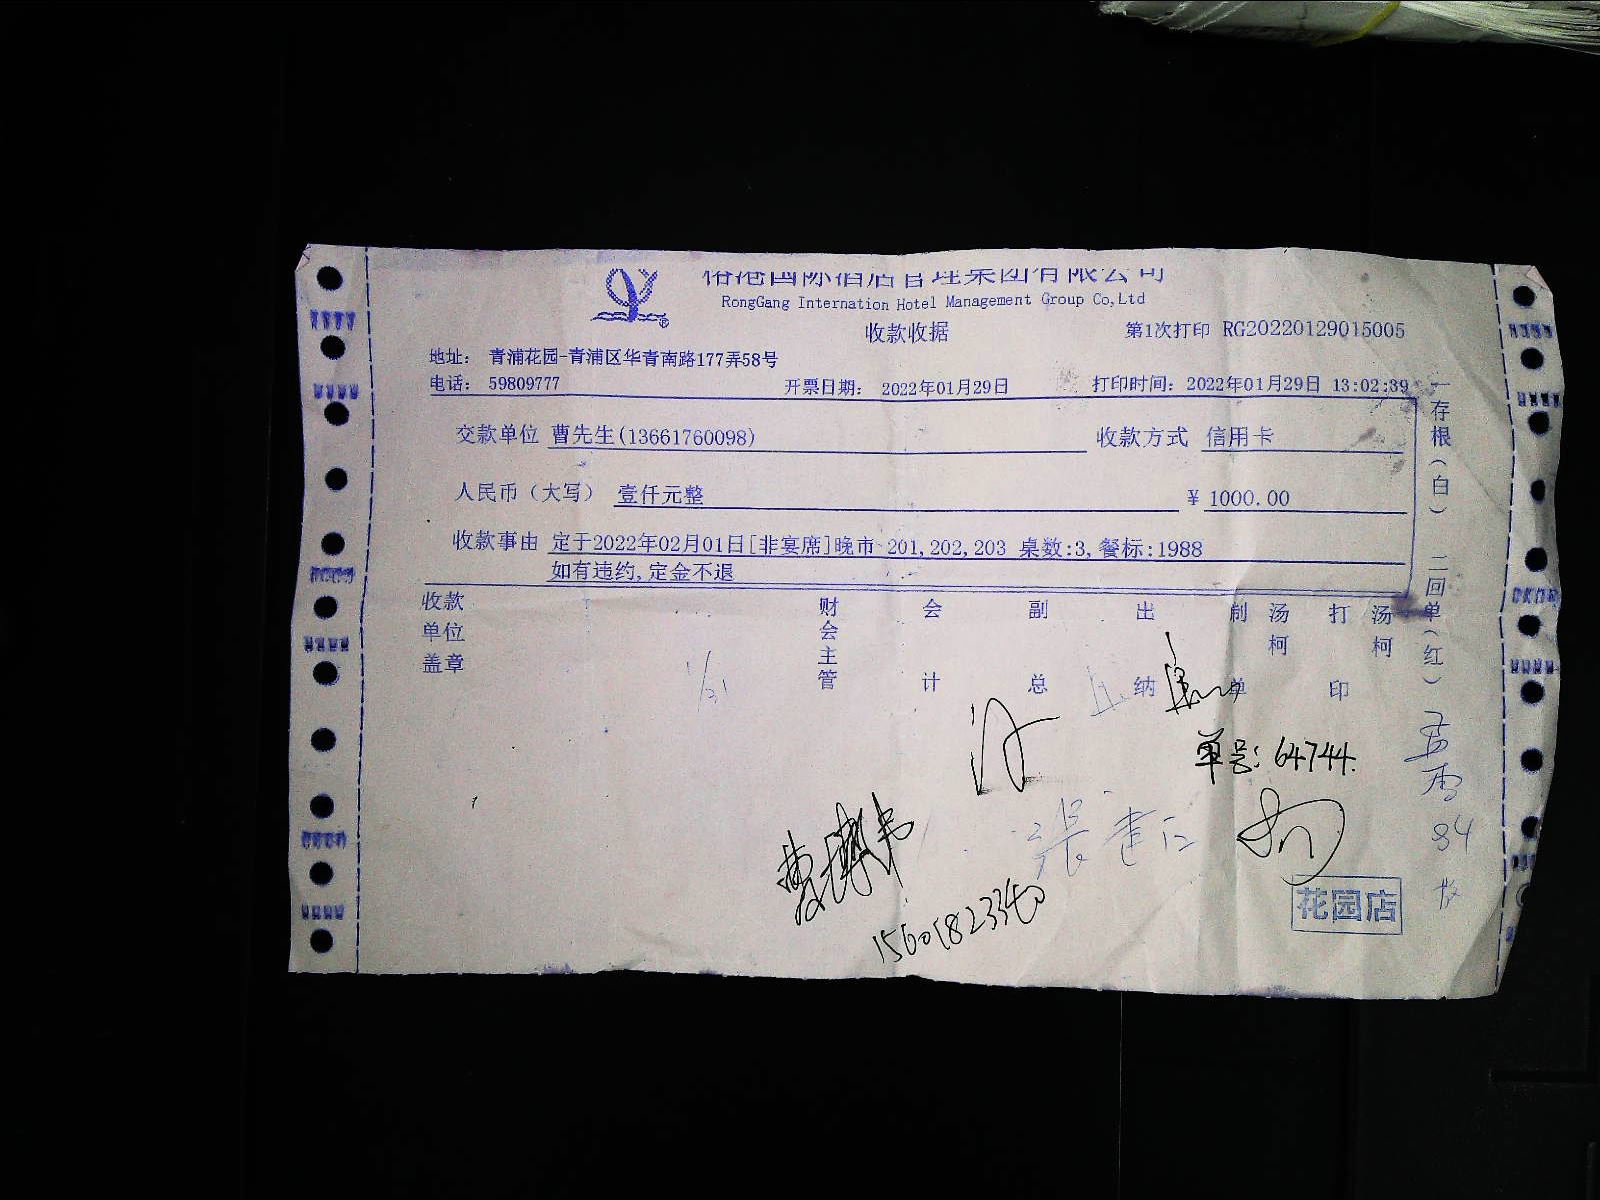 港国际酒店管理集团有限公司
RongGang Internation Hotel Management Group Co,Ltd
收款收据
第1次打印 RG20220129015005
地址： 青浦花园-青浦区华青南路177弄58号
电话： 59809777
开票日期： 2022年01月29日
打印时间：2022年01月29日 13:02:39
交款单位 曹先生(13661760098)
收款方式 信用卡
人民币（大写） 壹仟元整
¥ 1000.00
收款事由 定于2022年02月01日[非宴席]晚市 201,202,203 桌数:3,餐标:1988
如有违约,定金不退
收款单位盖章
财会主管
会计
副总
出纳
制单
汤柯
打印
汤柯
一存根（白） 二回单（红）
1/31
单号: 64744.
张建仁
15601823340
84
花园店